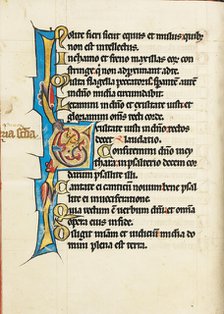 Nolite fieri sicut equus et mulus quib;
non est intellectus
In chamo et freno maxillas eor con
stringe q̄ non adpximant ad te
Multa flagella peccatoris sperantem aut̄
in dn̄o misericordia circumdabit
Letamini in dn̄o et exultate iusti et
gloriamini om̄s recti corde
ria scd̄a
Exultate iusti in dn̄o rectos
decet laudatio.
Confitemini dn̄o in cy
thara in psalterio decem cor
darum psallite illi.
Cantate ei canticū novum bene psal
lite ei in vociferatione
Quia rectum ē verbum dn̄i et om̄ia
opera eius in fide
Diligit miām et iudicium mīcdia do
mini plena est terra.